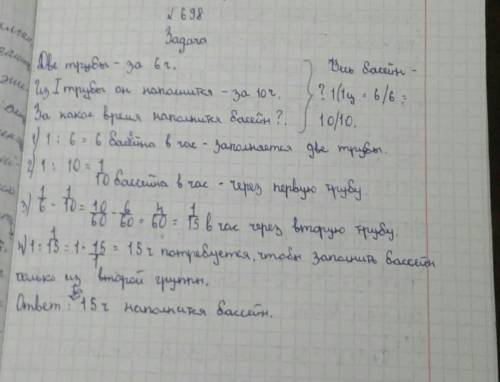 № 698
Задача
Две трубы - за 6 ч.
Из I трубы он наполнится - за 10 ч.
За какое время наполнится бассейн?.
Весь бассейн -
? 1 (1ц = 6/6 =
10/10.
1) 1 : 6 = 6 бассейна в час - заполняется две трубы.
2) 1 : 10 = 1/10 бассейна в час - через первую трубу.
3) 1/6 - 1/10 = 10/60 - 6/60 = 4/60 = 1/15 в час через вторую трубу.
4) 1 : 1/15 = 1 · 15/1 = 15 ч потребуется, чтобы заполнить бассейн
только из второй группы.
Ответ: 15 ч наполнится бассейн.